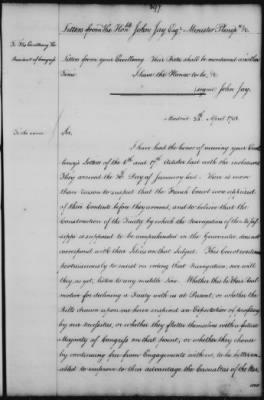 297
Letters from the Honble John Jay Esqr Minister Plenipy &c.
To His Excellency the
President of Congress
Letters from your Excellency. Their Dates shall be mentioned another
Time.
I have the Honor to be, &c.
(signed) John Jay.
Madrid 28th April 1782
To the same
Sir,
I have had the honor of receiving your Excel-
lency's Letters of the 6th and 17th October last with the inclosures
They arrived the 30th Day of January last. There is more
than reason to suspect that the French Court were apprized
of their Contents before they arrived, and to believe that the
Construction of the Treaty by which the Navigation of the Missis-
sippi is supposed to be comprehended in the Guarantee, does not
correspond with their Ideas on that Subject. This Court continues
pertinaciously to insist on ceding that Navigation, nor will
they, as yet, listen to any middle Line. Whether this be their real
motive for declining a Treaty with us at Present, or whether the
Bills drawn upon me have inspired an Expectation of profiting
by our necessities, or whether they flatter themselves with a future
Majority of Congress on that point, or whether they choose
by continuing free from Engagements with us, to be better en-
abled to improve to their advantage the Casualties of the War
are